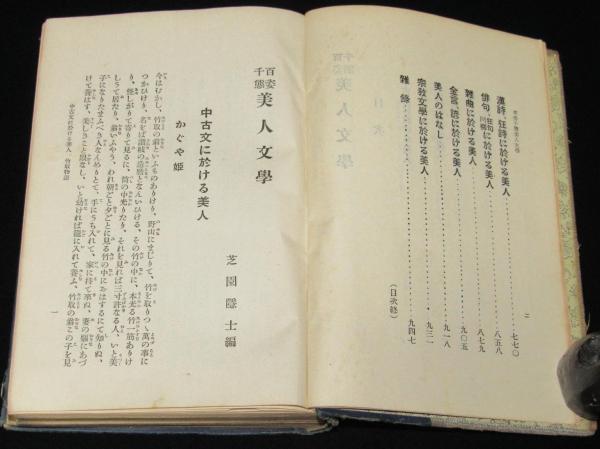 漢詩、狂詩に於ける美人‥‥‥‥七七〇
俳句、狂句、川柳に於ける美人‥‥‥‥八五八
雜曲に於ける美人‥‥‥‥八七九
金言、諺に於ける美人‥‥‥‥九〇五
美人のはなし‥‥‥‥九一八
宗敎文學に於ける美人‥‥‥‥九三一
雜錄‥‥‥‥九四七
(目次終)
二
百姿千態 美人文學
芝園隱士編
中古文に於ける美人
かぐや姬
今はむかし、竹取の翁といふものありけり、野山にまじりて、竹を取りつゝ萬の事に
つかひけり、名をば讃岐の造麿となんいひける、その竹の中に、本光る竹一筋ありけ
り、怪しがりて寄りて見るに、筒の中光りたり、それを見れば三寸計なる人、いと美
しうて居たり、翁いふやう、われ朝ごと夕ごとに見る竹の中におはするにて知りぬ、
子になりたまふべき人なんめりとて、手にうち入れて、家に持て來ぬ、妻の嫗にあづ
けて養はす、美しきこと限なし、いと幼ければ籠に入れて養ふ、竹取の翁この子を見
中古文に於ける美人 竹取物語
一